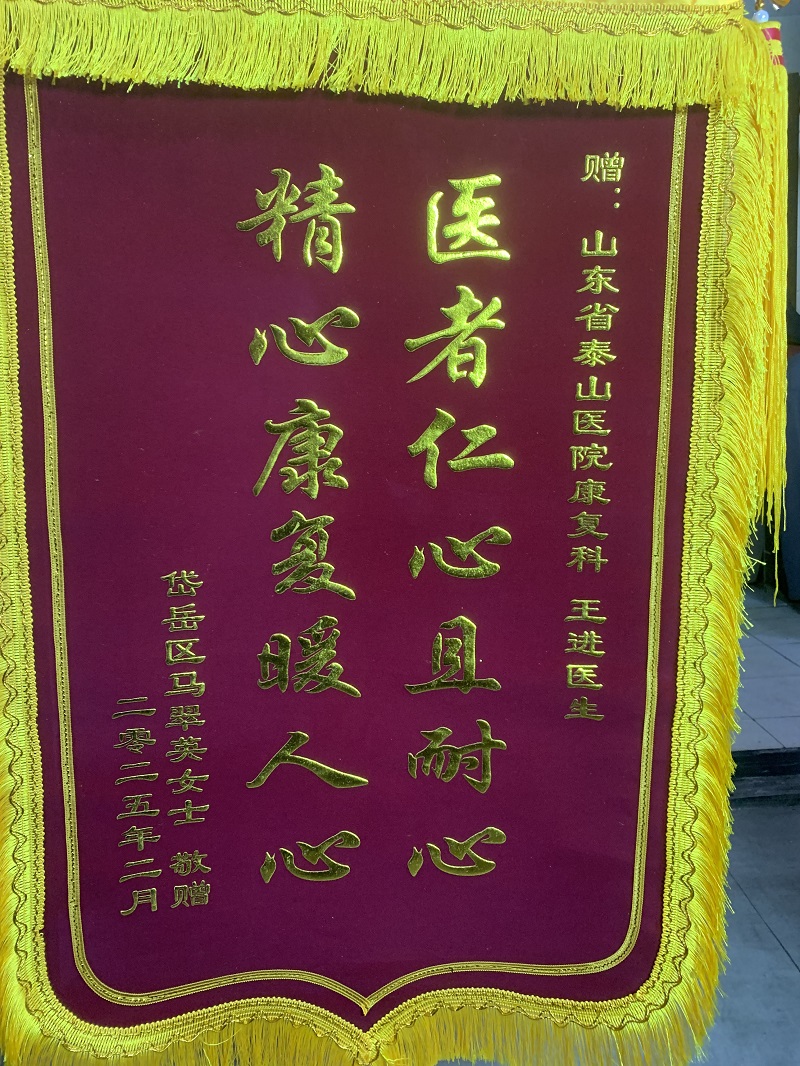 赠：山东省泰山医院康复科 王进医生
医者仁心且耐心
精心康复暖人心
岱岳区马翠英女士 敬赠
二零二五年二月